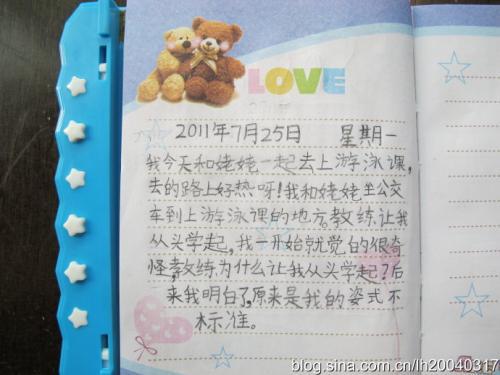 LOVE
2011年7月25日 星期一
我今天和姥姥一起去上游泳课,
去的路上好热呀!我和姥姥坐公交
车到上游泳课的地方。教练让我
从头学起,我一开始就觉的很奇
怪,教练为什么让我从头学起?后
来我明白了,原来是我的姿式不
标准。
blog.sina.com.cn/lh20040317